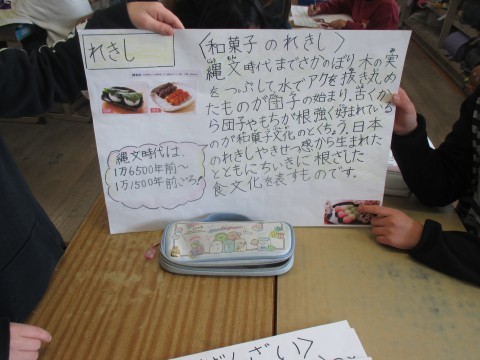 れきし
〈和菓子のれきし〉
縄文時代までさかのぼり、木の実
をつぶして水でアクを抜き丸め
たものが団子の始まり、古くか
ら団子やもちが根強く好まれている
のが和菓子文化のとくちょう、日本
のれきしやきせつ感から生まれた
とともにちいきに根ざした
食文化を表すものです。
縄文時代は、
1万6500年前〜
1万1500年前ごろ!